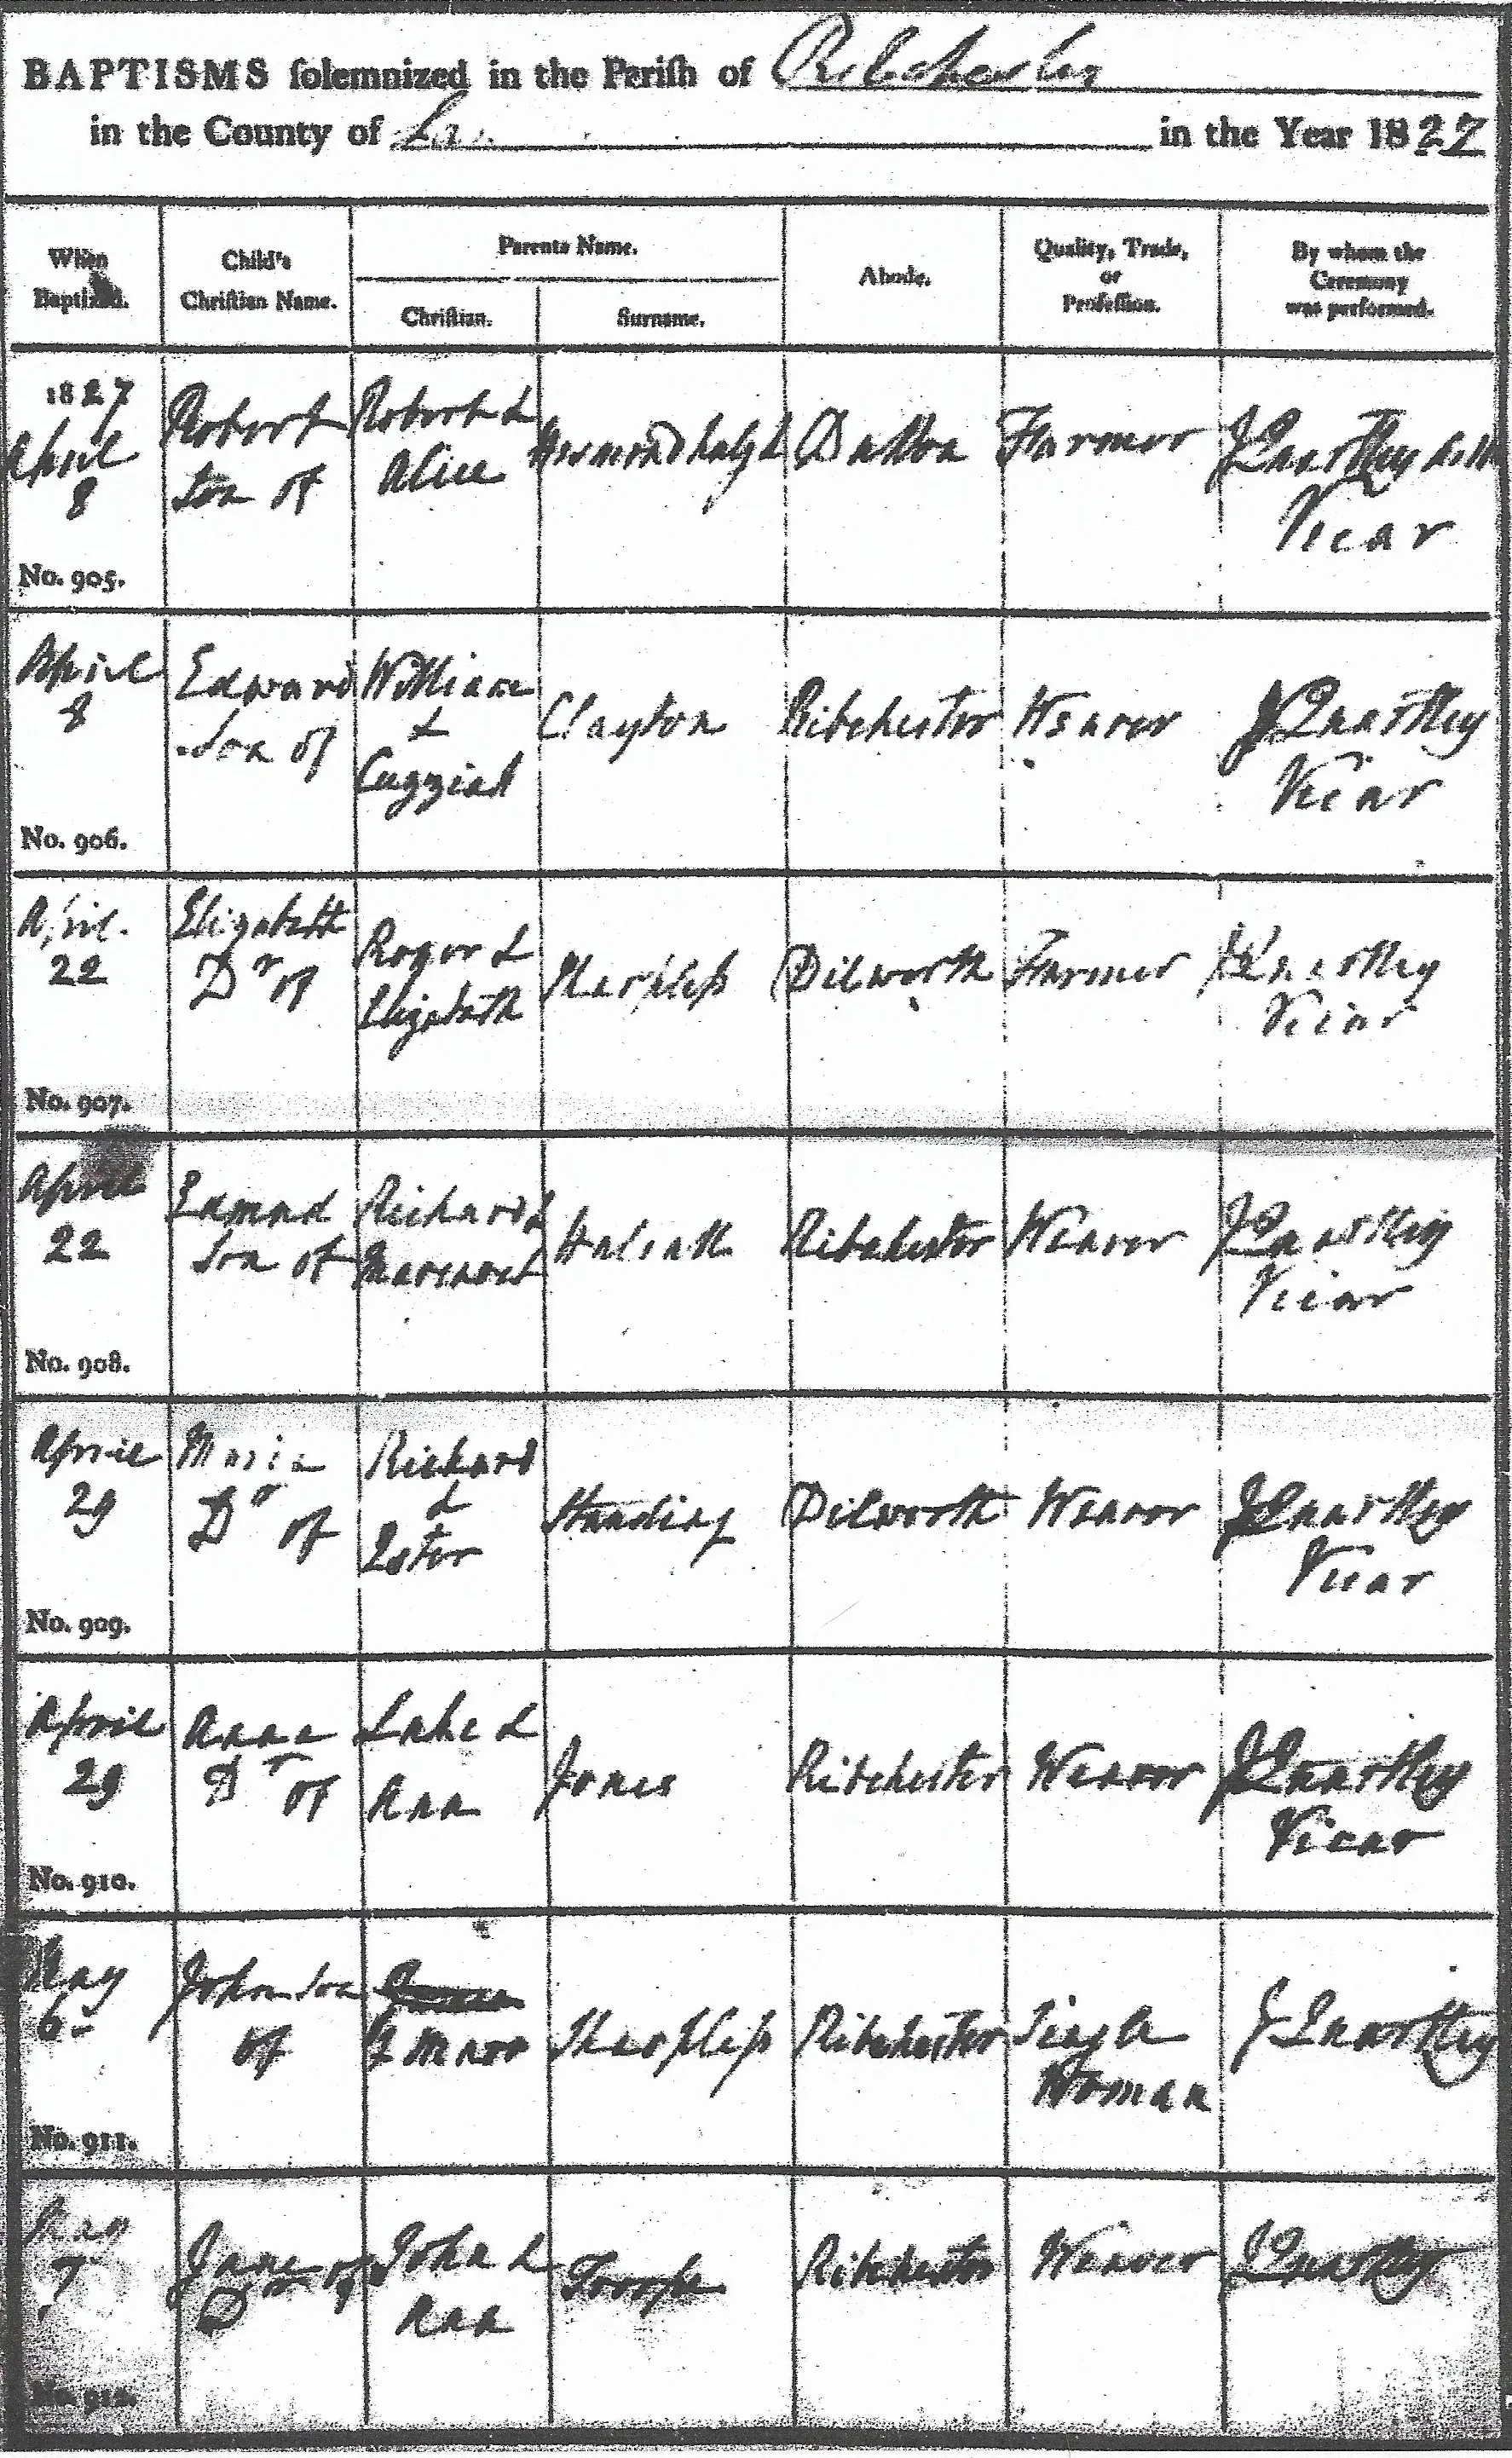 BAPTISMS ſolemnized in the Pariſh of Ribchester
in the County of Lan in the Year 1827
When Baptized.
Child's Chriſtian Name.
Parents Name.
Chriſtian.
Surname.
Abode.
Quality, Trade, or Profeſſion.
By whom the Ceremony was performed.
1827
April 8
No. 905.
Robert son of
Robert & Alice
Dutton
Farmer
J Quartley
Vicar
April 8
No. 906.
Edward son of
William & Cuzziah
Clayton
Ribchester
Weaver
J Quartley
Vicar
April 22
No. 907.
Elizabeth Dr of
Roger & Elizabeth
Sharpless
Dilworth
Farmer
J Quartley
Vicar
April 22
No. 908.
Edmund son of
Richard & Margaret
Ribchester
Weaver
J Quartley
Vicar
April 29
No. 909.
Maria Dr of
Richard & Ester
Standing
Dilworth
Weaver
J Quartley
Vicar
April 29
No. 910.
Anne Dr of
Luke & Ann
Jones
Ribchester
Weaver
J Quartley
Vicar
May 6
No. 911.
John son of
Sharpless
Ribchester
Single Woman
J Quartley
May 7
No. 912.
Jane Dr of
John & Ann
Ribchester
Weaver
J Quartley